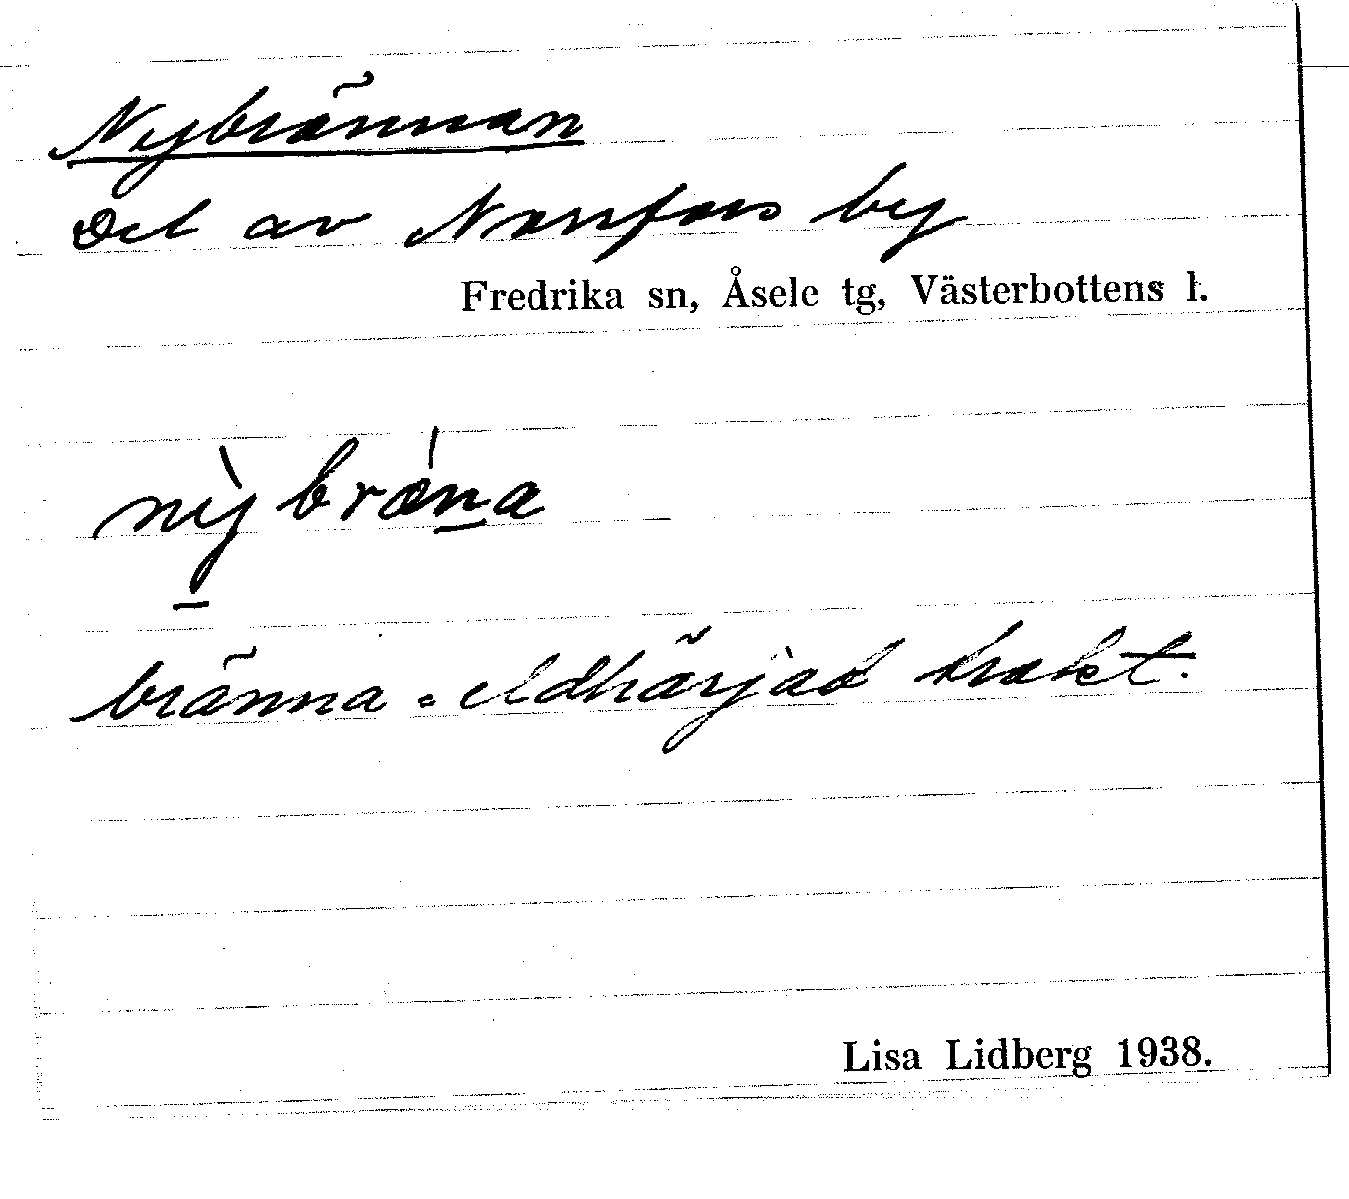 Nybrännan
Del av Norrfors by
Fredrika sn, Åsele tg, Västerbottens l.
nỳ brǽn̲a
bränna = eldhärjad trakt.
Lisa Lidberg 1938.